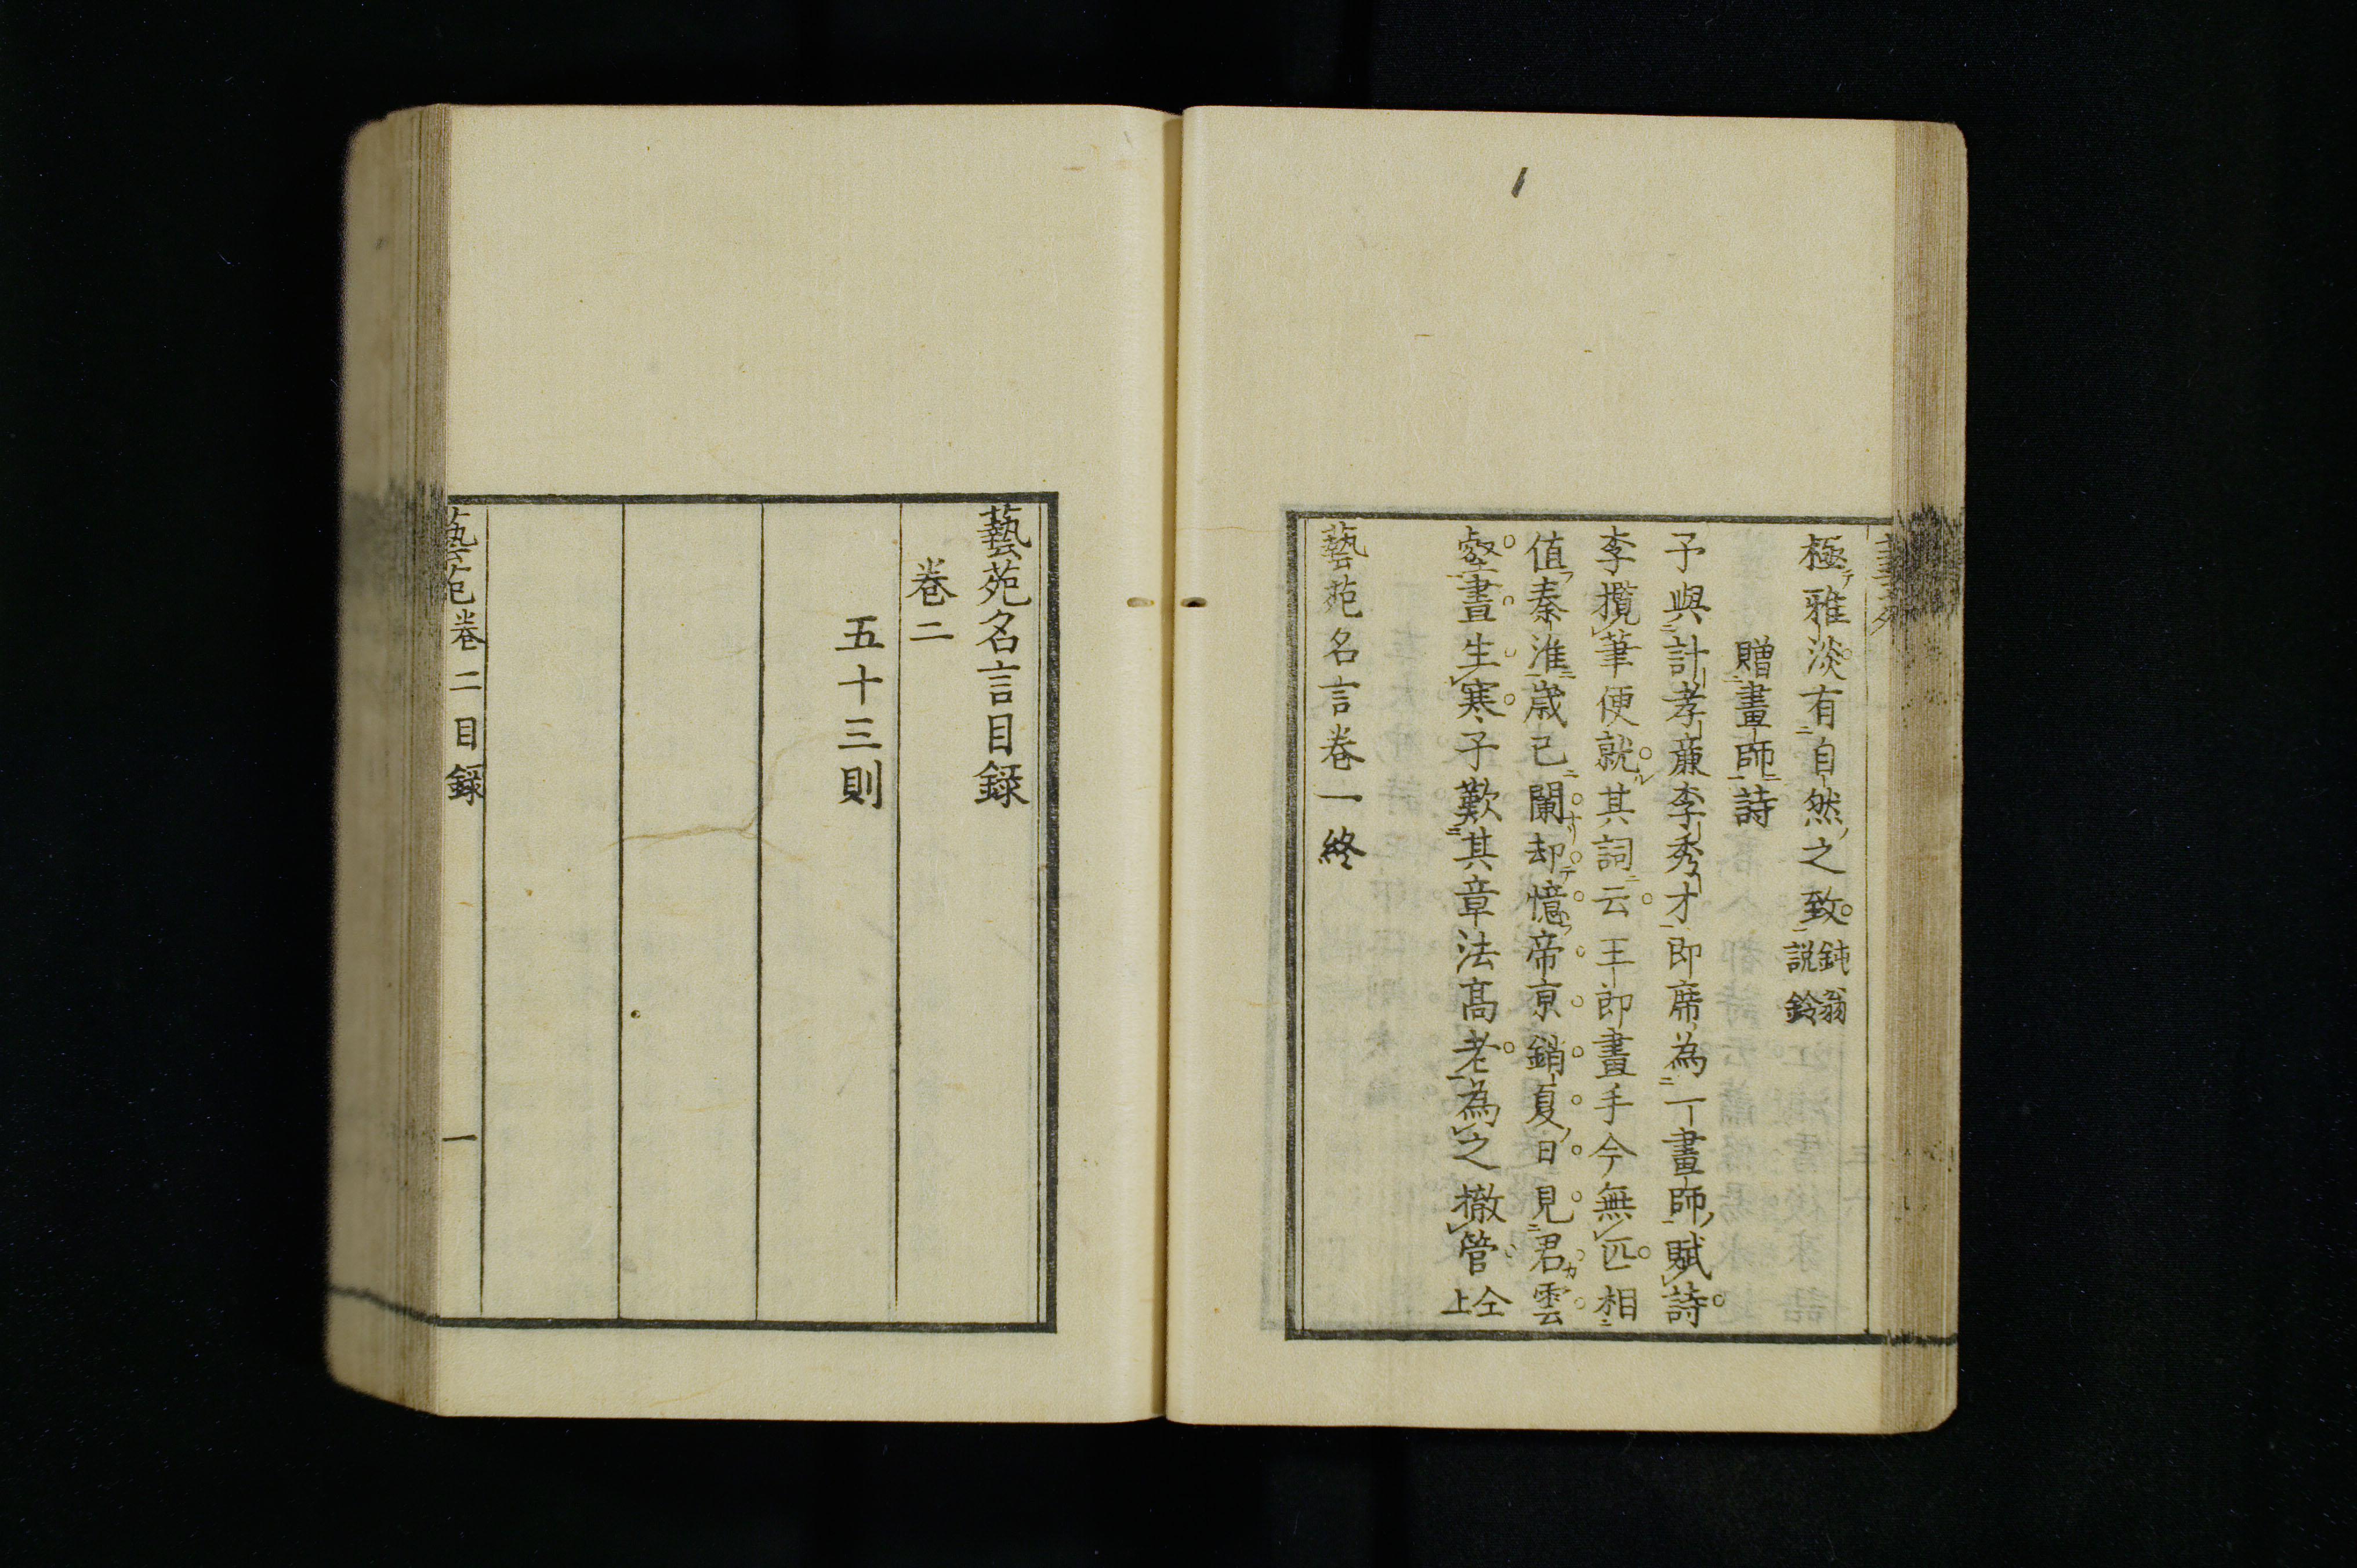 極雅淡有自然之致鈍翁說鈴
贈畫師詩
予與計孝廉李秀才即席為一畫師賦詩
李攬筆便就其詞云王郎畫手今無匹相
值秦淮歲已闌却憶帝京銷夏日見君雲
壑晝生寒予歎其章法高老為之撤管仝上
藝苑名言卷一終
藝苑名言目錄
卷二
五十三則
藝苑卷二目錄
一